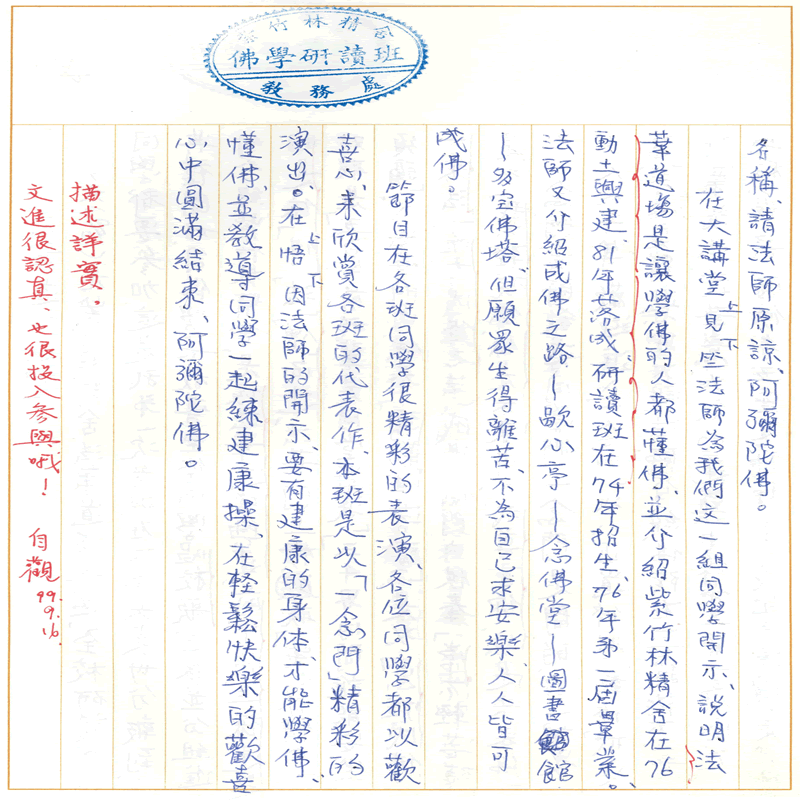 紫竹林精舍
佛學研讀班
教務處
名稱、請法師原諒、阿彌陀佛。
在大講堂上見下竺法師為我們這一組同學開示、說明法
華道場是讓學佛的人都懂佛、並介紹紫竹林精舍在76
動土興建、81年落成、研讀班在74年招生、76年第一屆畢業。
法師又介紹成佛之路~歇心亭~念佛堂~圖書館
~多宝佛塔、但願眾生得離苦、不為自己求安樂、人人皆可
成佛。
節目在各班同學很精彩的表演、各位同學都以歡
喜心、來欣賞各班的代表作、本班是以「一念門」精彩的
演出。在上悟下因法師的開示、要有建康的身体、才能學佛、
懂佛、並教導同學一起練建康操、在輕鬆快樂的歡喜
心中圓滿結束、阿彌陀佛。
描述詳實，
文進很認真、也很投入參與哦！
自觀 99.9.16.